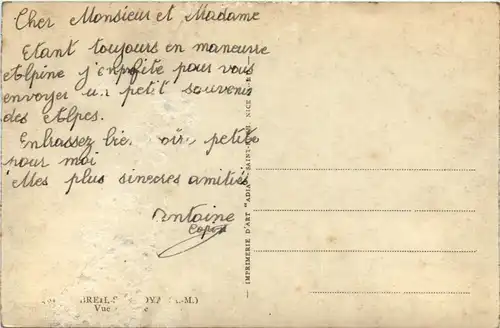 Cher Monsieur et Madame
Etant toujours en maneuvre
Alpine j'en profite pour vous
envoyer un petit souvenir
des Alpes.
Embrassez bien petite
pour moi
Mes plus sinceres amitiés
Fontaine
IMPRIMERIE D'ART "ADIA" NICE
BREIL
Vue